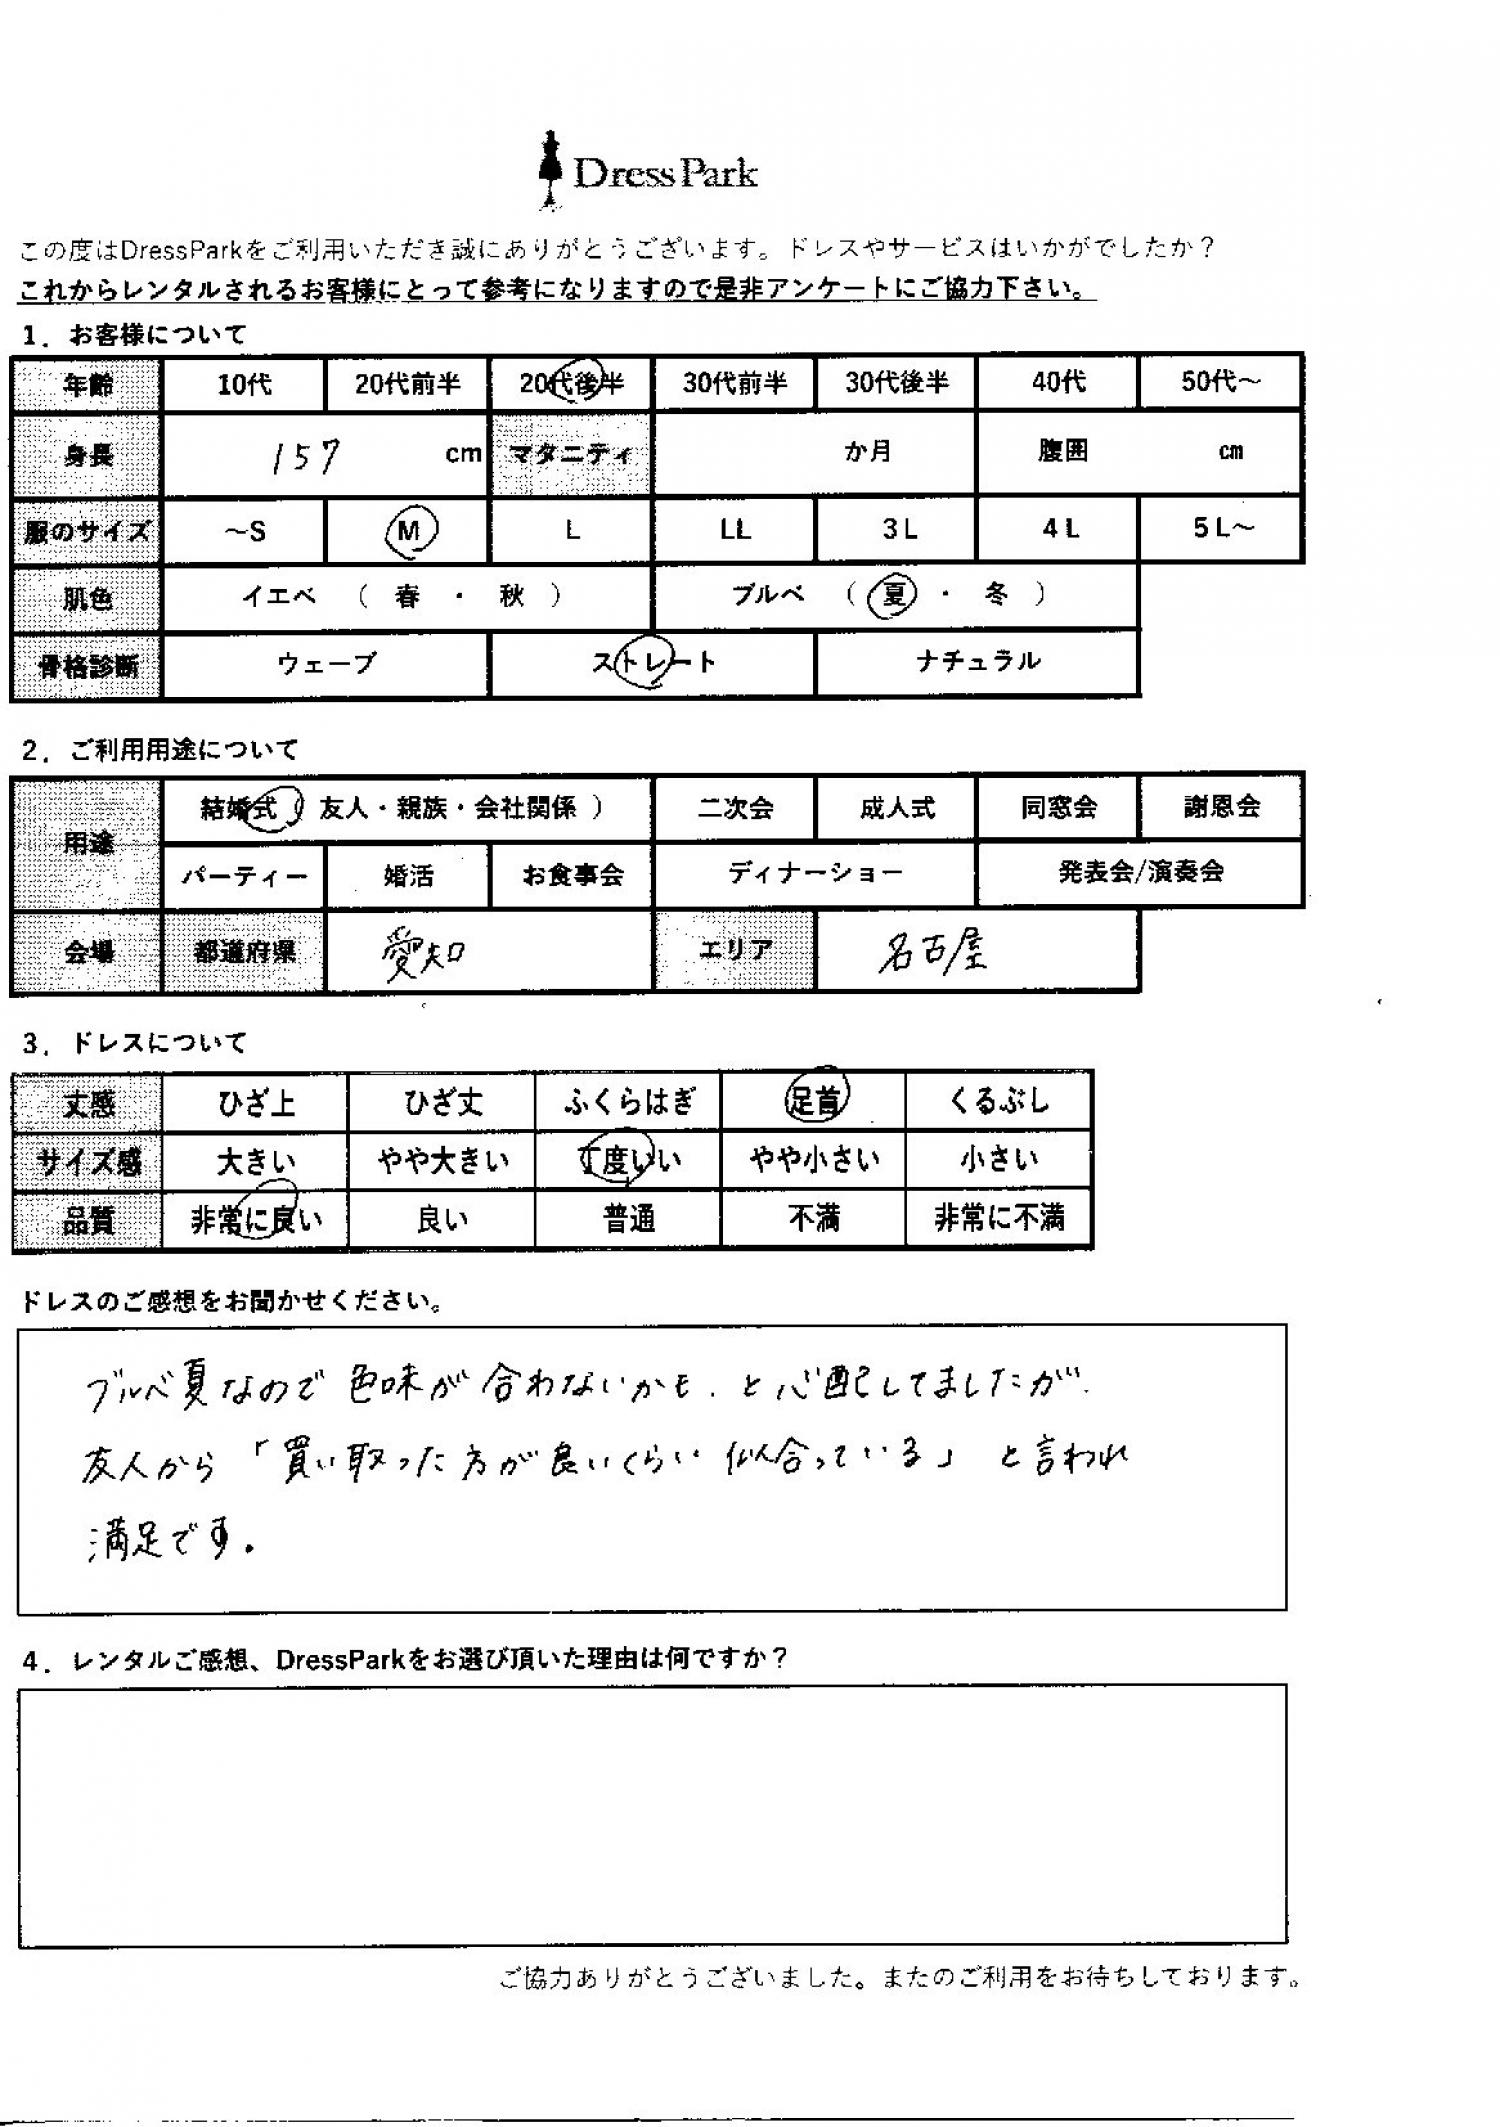 DressPark
この度はDressParkをご利用いただき誠にありがとうございます。ドレスやサービスはいかがでしたか？
これからレンタルされるお客様にとって参考になりますので是非アンケートにご協力下さい。
1．お客様について
年齢 10代 20代前半 20代後半 30代前半 30代後半 40代 50代～
身長 157 cm マタニティ か月 腹囲 cm
服のサイズ ～S M L LL 3L 4L 5L～
肌色 イエベ （ 春 ・ 秋 ） ブルベ （ 夏 ・ 冬 ）
骨格診断 ウェーブ ストレート ナチュラル
2．ご利用用途について
用途 結婚式（ 友人・親族・会社関係 ） 二次会 成人式 同窓会 謝恩会
パーティー 婚活 お食事会 ディナーショー 発表会/演奏会
会場 都道府県 愛知 エリア 名古屋
3．ドレスについて
丈感 ひざ上 ひざ丈 ふくらはぎ 足首 くるぶし
サイズ感 大きい やや大きい 丁度いい やや小さい 小さい
品質 非常に良い 良い 普通 不満 非常に不満
ドレスのご感想をお聞かせください。
ブルベ夏なので色味が合わないかも、と心配してましたが、
友人から「買い取った方が良いくらい似合っている」と言われ
満足です。
4．レンタルご感想、DressParkをお選び頂いた理由は何ですか？
ご協力ありがとうございました。またのご利用をお待ちしております。